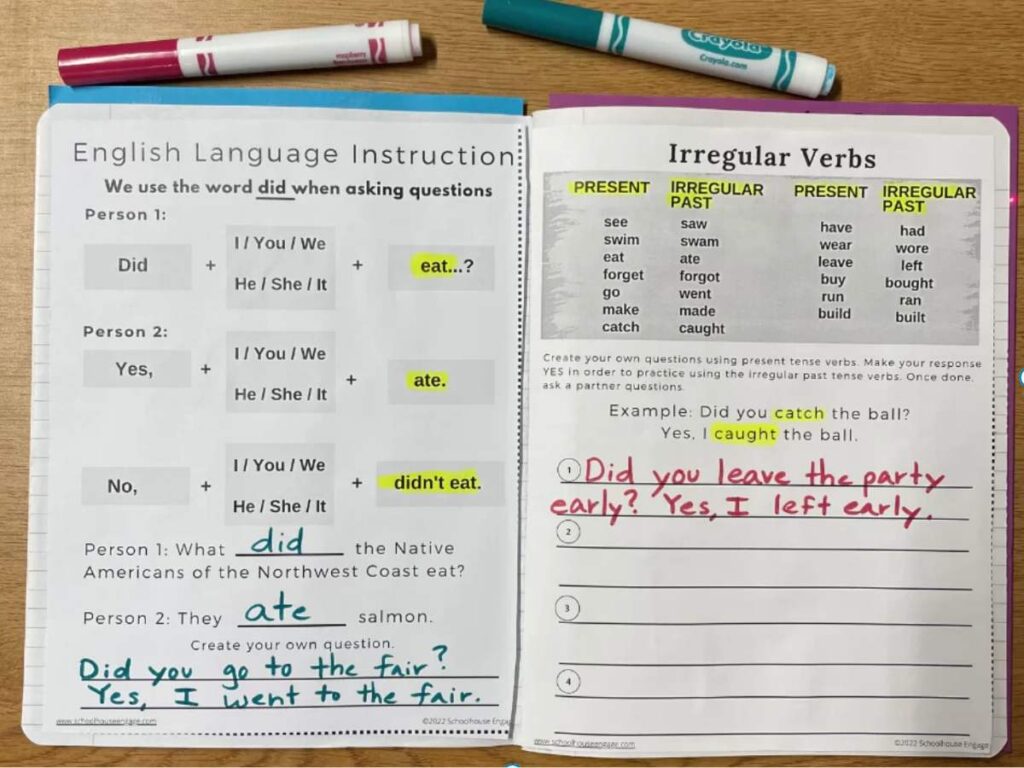 raspberry
Crayola
Crayola.com
English Language Instruction
We use the word did when asking questions
Person 1:
Did + I / You / We He / She / It + eat...?
Person 2:
Yes, + I / You / We He / She / It + ate.
No, + I / You / We He / She / It + didn't eat.
Person 1: What did the Native
Americans of the Northwest Coast eat?
Person 2: They ate salmon.
Create your own question.
Did you go to the fair?
Yes, I went to the fair.
www.schoolhouseengage.com ©2022 Schoolhouse Engag
Irregular Verbs
PRESENT IRREGULAR PAST PRESENT IRREGULAR PAST
see saw have had
swim swam wear wore
eat ate leave left
forget forgot buy bought
go went run ran
make made build built
catch caught
Create your own questions using present tense verbs. Make your response
YES in order to practice using the irregular past tense verbs. Once done,
ask a partner questions.
Example: Did you catch the ball?
Yes, I caught the ball.
1 Did you leave the party
early? Yes, I left early.
2
3
4
www.schoolhouseengage.com ©2022 Schoolhouse Engage